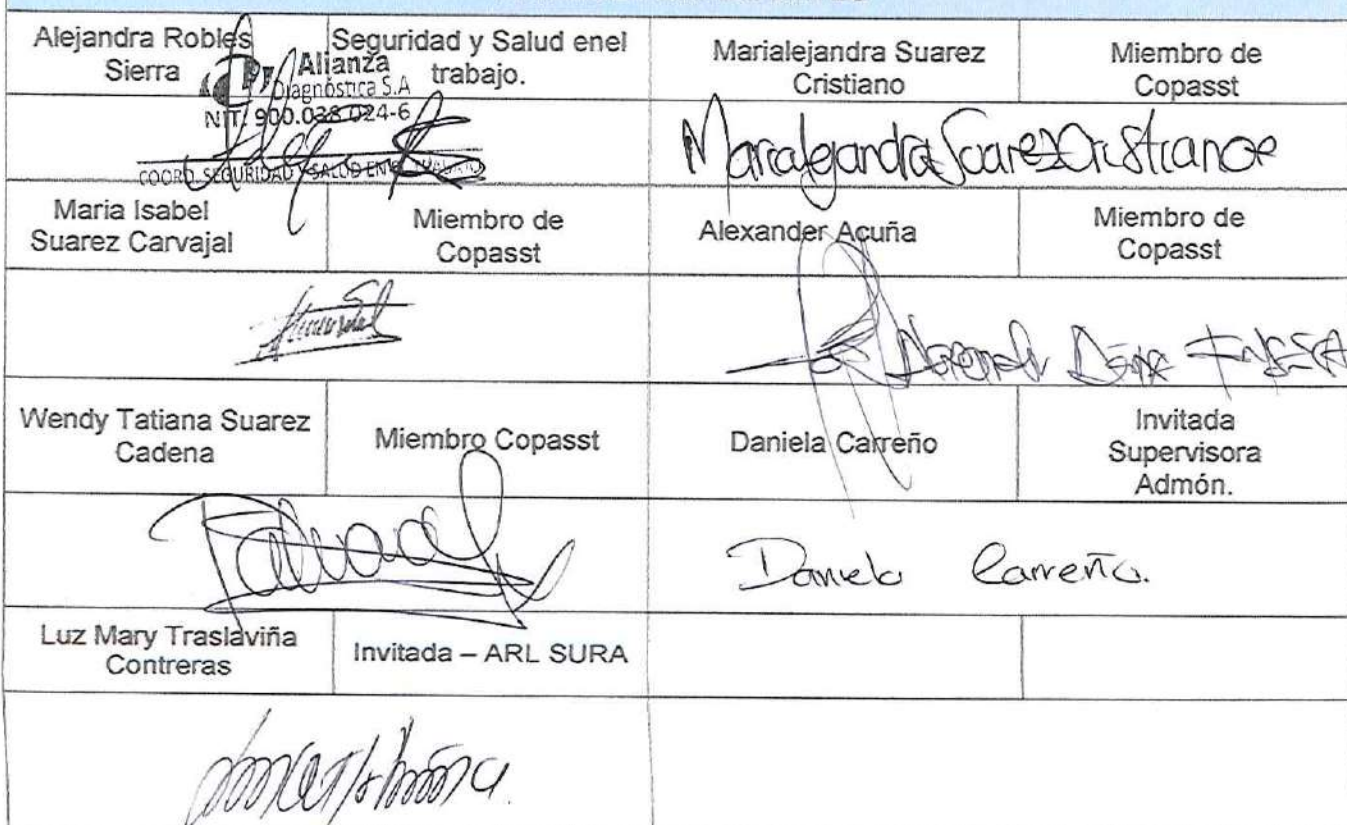 Alejandra Robles
Sierra
Seguridad y Salud enel
trabajo.
Marialejandra Suarez
Cristiano
Miembro de
Copasst
Alianza
Diagnóstica S.A
NIT: 900.038.024-6
COORD. SEGURIDAD Y SALUD EN
Marialejandra Suarez Cristiano
Maria Isabel
Suarez Carvajal
Miembro de
Copasst
Alexander Acuña
Miembro de
Copasst
Wendy Tatiana Suarez
Cadena
Miembro Copasst
Daniela Carreño
Invitada
Supervisora
Admón.
Daniela Carreño.
Luz Mary Traslaviña
Contreras
Invitada – ARL SURA